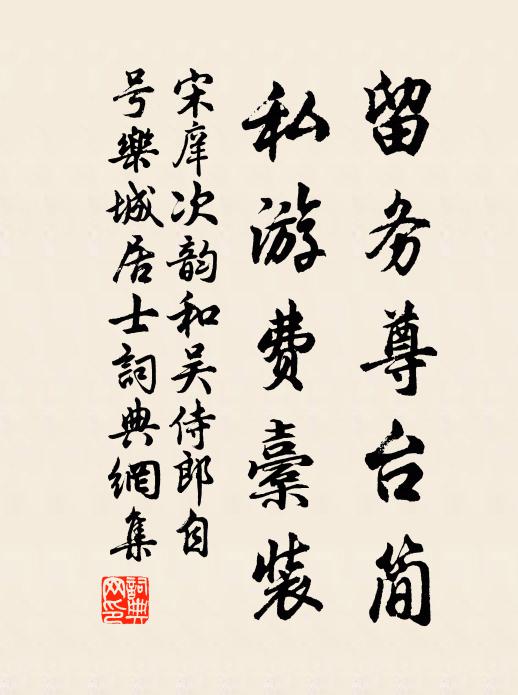 留务尊台简
私游费橐装
宋庠次韵和吴侍郎自
号樂城居士詞典網集
詞典网印